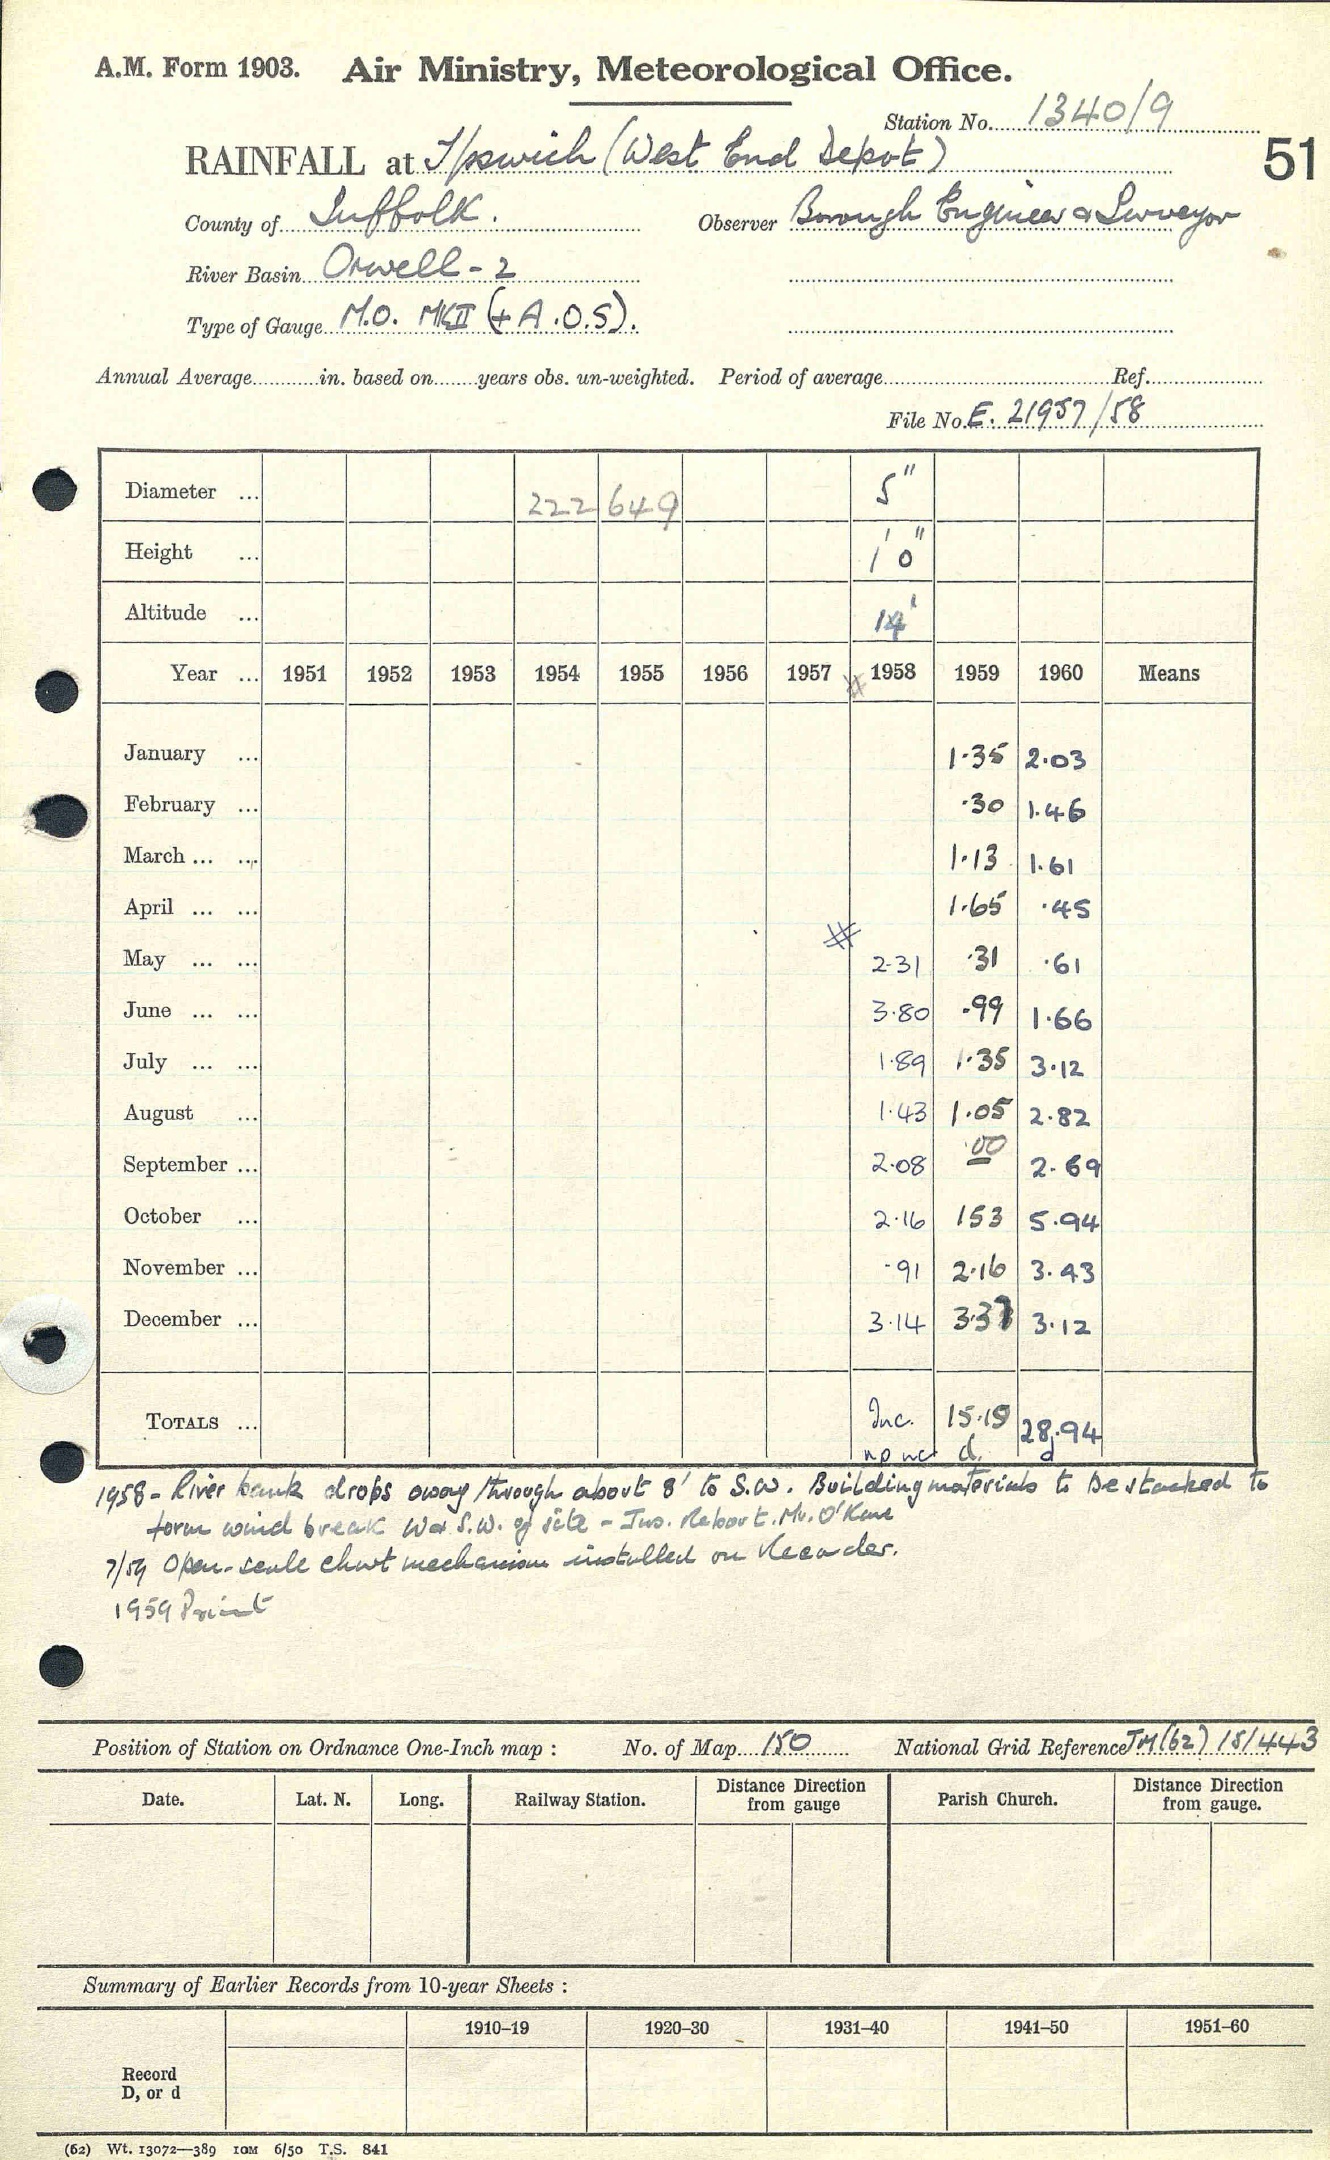 A.M. Form 1903. Air Ministry, Meteorological Office.
Station No. 1340/9
RAINFALL at Ipswich (West End Depot)
51
County of Suffolk. Observer Borough Engineer & Surveyor
River Basin Orwell - 2
Type of Gauge M.O. MKII (+ A.O.S).
Annual Average in. based on years obs. un-weighted. Period of average Ref.
File No. E. 21957/58
Diameter ... 222 649 5"
Height ... 1' 0"
Altitude ... 14'
Year ... 1951 1952 1953 1954 1955 1956 1957 # 1958 1959 1960 Means
January ... 1.35 2.03
February ... .30 1.46
March ... ... 1.13 1.61
April ... ... 1.65 .45
#
May ... ... 2.31 .31 .61
June ... ... 3.80 .99 1.66
July ... ... 1.89 1.35 3.12
August ... 1.43 1.05 2.82
September ... 2.08 .00 2.69
October ... 2.16 153 5.94
November ... .91 2.16 3.43
December ... 3.14 3.37 3.12
TOTALS ... Inc. 15.19 28.94
d. d
1958 - River bank drops away through about 8' to S.W. Building materials to be stacked to
form wind break W & S.W. of site - Ins. Report. Mr. O'Kane
7/59 Open-scale chart mechanism installed on Recorder.
1959 Print
Position of Station on Ordnance One-Inch map : No. of Map 150 National Grid Reference TM(62) 151443
Date. Lat. N. Long. Railway Station. Distance Direction from gauge Parish Church. Distance Direction from gauge.
Summary of Earlier Records from 10-year Sheets :
1910–19 1920–30 1931–40 1941–50 1951–60
Record
D, or d
(62) Wt. 13072—389 10M 6/50 T.S. 841